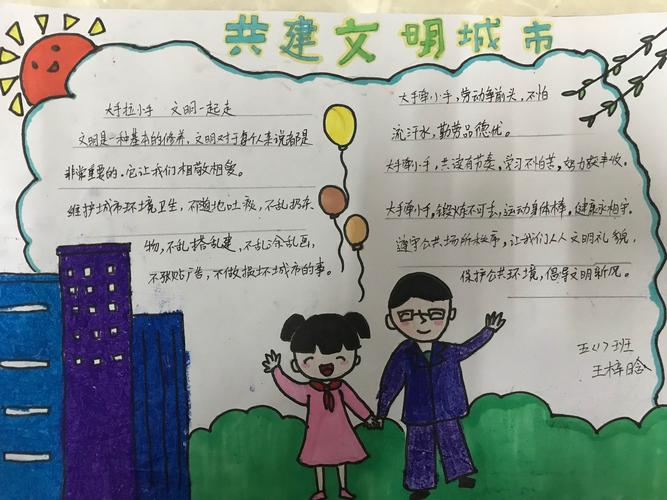 共建文明城市
大手拉小手 文明一起走
文明是一种基本的修养,文明对于每个人来说都是
非常重要的。它让我们相敬相爱。
维护城市环境卫生,不随地吐痰,不乱扔杂
物,不乱搭乱建,不乱涂乱画,
不张贴广告,不做损坏城市的事。
大手牵小手,劳动争前头,不怕
流汗水,勤劳品德优。
大手牵小手,共读有节奏,学习不怕苦,努力获丰收。
大手牵小手,锻炼不可丢,运动身体棒,健康永相守。
遵守公共场所秩序,让我们人人文明礼貌,
保护公共环境,倡导文明新风。
五(1)班
王梓晗